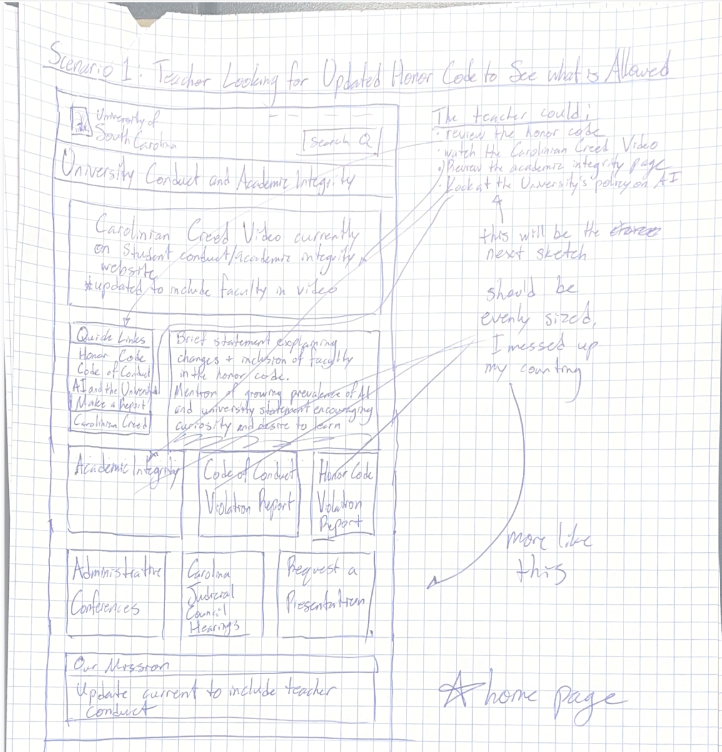 Scenario 1: Teacher Looking for Updated Honor Code to See what is Allowed
University of
South Carolina
Search Q
University Conduct and Academic Integrity
Carolinian Creed Video currently
on Student conduct/academic integrity
website
*updated to include faculty in video
Quick Links
Honor Code
Code of Conduct
AI and the University
Make a Report
Carolinian Creed
Brief statement explaining
changes + inclusion of faculty
in the honor code.
Mention of growing prevalence of AI
and university statement encouraging
curiosity and desire to learn
Academic Integrity
Code of Conduct
Violation Report
Honor Code
Violation
Report
Administrative
Conferences
Carolina
Judicial
Council
Hearings
Request a
Presentation
Our Mission
Update current to include teacher
conduct
The teacher could:
· review the honor code
· watch the Carolinian Creed Video
· Review the academic integrity page
· Look at the University's policy on AI
this will be the
next sketch
should be
evenly sized,
I messed up
my counting
more like
this
☆ home page